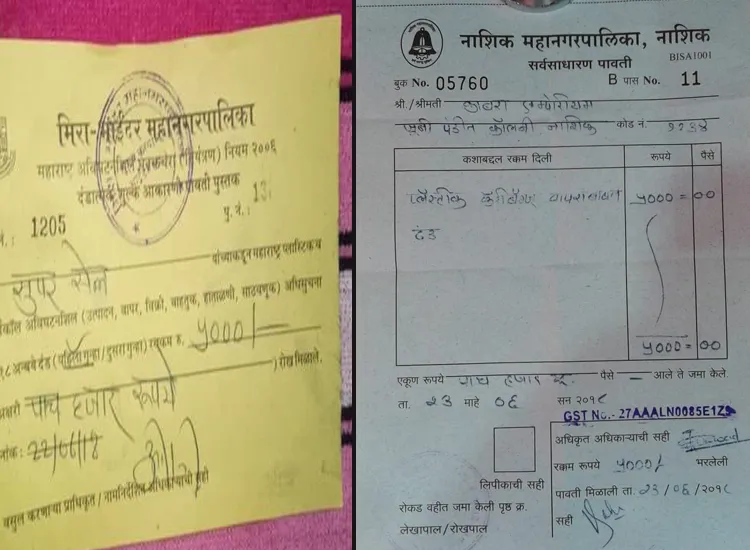 मिरा-भाईंदर महानगरपालिका
महाराष्ट्र अविघटनशील (नियंत्रण) नियम २००६
दंडात्मक शुल्क आकारणी पावती पुस्तक
1205
पु. नं. :
सुपर सेल
यांच्याकडून महाराष्ट्र प्लास्टिक व
अविघटनशील (उत्पादन, वापर, विक्री, वाहतुक, हाताळणी, साठवणुक) अधिसुचना
अन्वये दंड (पहिला गुन्हा/दुसरा गुन्हा) रक्कम रु. ५०००/-
) रोख मिळाले.
अक्षरी पाच हजार रूपये
वसुल करणाऱ्या प्राधिकृत / नामनिर्देशित अधिकाऱ्याची सही
नाशिक महानगरपालिका, नाशिक
सर्वसाधारण पावती
BISA1001
बुक No. 05760 B पास No. 11
श्री./श्रीमती छाबरा एम्पोरियम
पंडीत कॉलनी नाशिक कोड नं. ११३४
कशाबद्दल रक्कम दिली रुपये पैसे
प्लॅस्टीक कॅरीबॅग्ज ५००० = ००
दंड
५००० = ००
एकूण रूपये पाच हजार रु. पैसे — आले ते जमा केले.
ता. २३ माहे ०६ सन २०१८
GST No.- 27AAALN0085E1Z
अधिकृत अधिकाऱ्याची सही
रक्कम रूपये ५०००/ भरलेली
लिपीकाची सही
पावती मिळाली ता. २३/०६/२०१८
रोकड वहीत जमा केली पृष्ठ क्र.
सही
लेखापाल/रोखपाल